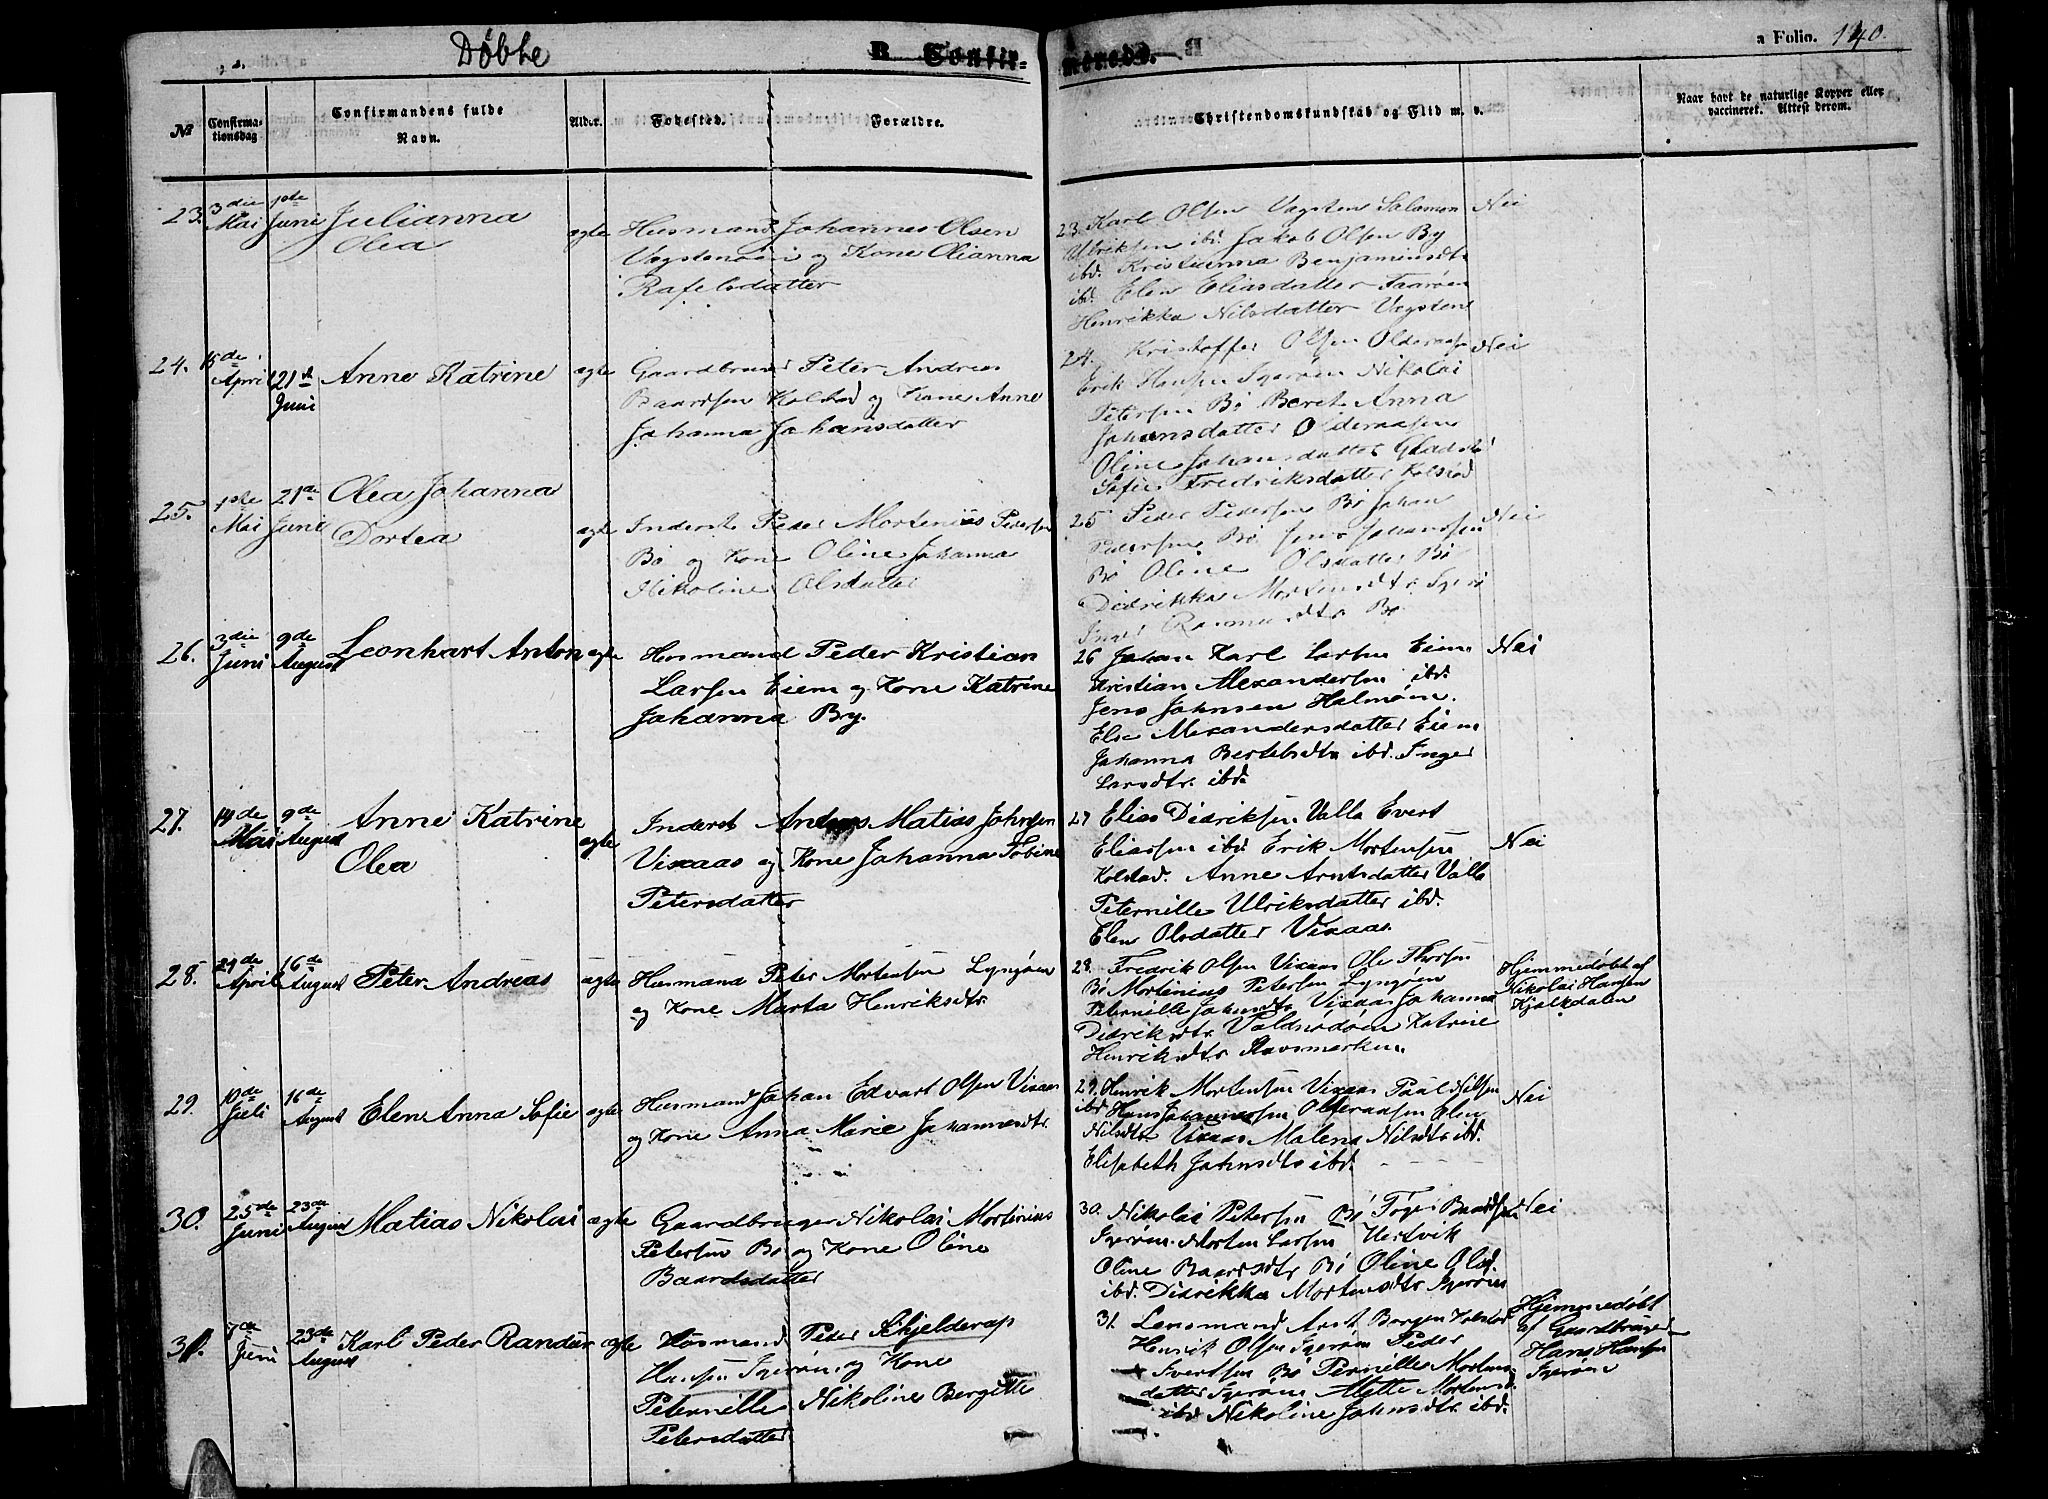 Døbte
B. Confir-
merede.
a Folio. 140.
№
Confirma-
tionsdag
Confirmandens fulde
Navn.
Alder.
Fødested.
Forældre.
Christendomskundskab og Flid m. v.
Naar havt de naturlige Kopper eller
vaccineret. Attest derom.
23. 3die Mai 1ste Juni Julianna
Olea
ægte
Husmand Johannes Olsen
Vegstenøien og Kone Olianna
Rafelsdatter
23. Karl Olsen Vegsten Salamon
Ulriksen ibd. Jakob Olsen By
ibd. Kristianna Benjaminsdtr
ibd. Elen Eliasdatter Faarøen
Henrikka Nilsdatter Vegsten
Nei
24. 15de April 21de Juni Anne Katrine
ægte
Gaardbruger Peter Andreas
Baardsen Kolstad og Kone Anne
Johanna Johansdatter
24. Kristoffer Olsen Olderaasen
Erik Hansen Igerøen Nikolai
Petersen Bø Beret Anna
Johansdatter Olderaasen
Oline Johansdatter
Sofie Fredriksdatter Kolstad
Nei
25. 1ste Mai 21de Juni Olea Johanna
Dortea
ægte
Inderst Peder Mortenius Pedersen
Bø og Kone Oline Johanna
Nikoline Olsdatter
25 Peder Pedersen Bø Johan
Pedersen Bø Jens Johansen
Bø Oline Olsdatter Bø
Didrikka Mortensdtr. Igerø
Inger Rasmusdtr. Bø
Nei
26. 3die Juni 9de August Leonhart Anton
ægte
Husmand Peder Kristian
Larsen Eiem og Kone Katrine
Johanna By.
26 Johan Karl Larsen Eiem
Kristian Alexandersen ibd.
Jens Johnsen Halmøen.
Else Alexandersdatter Eiem
Johanna Bertelsdtr ibd. Inger
Larsdtr. ibd.
Nei
27. 14de Mai 9de August Anne Katrine
Olea
ægte
Inderst Andreas Matias Johnsen
Vixaas og Kone Johanna Tobine
Petersdatter
27 Elias Didriksen Valla Evert
Eliassen ibd Erik Mortensen
Kolstad. Anne Arntsdatter Valla
Peternille Ulriksdatter ibd.
Elen Olsdatter Vixaas
Nei
28. 29de April 16de August Peter Andreas
ægte
Husmand Peter Mortensen Lyngøen
og Kone Marta Henriksdtr.
28. Fredrik Olsen Vixaas Ole Thorsen
Bø Mortinius Petersen Lyngøen
Peternille Johnsdtr Vixaas Johanna
Didriksdtr. Katrine
Henriksdtr. Stavsmarken.
Hjemmedøbt af
Nikolai Hansen
Kjelkdalen
29. 10de Juli 16de August Elen Anna Sofie
ægte
Husmand Johan Edvart Olsen Vixaas
og Kone Anna Marie Johannesdtr.
29. Henrik Mortensen Vixaas Paul Nilsen
ibd Hans Johannessen Olderaasen Elen
Nilsdtr Vixaas Malena Nilsdtr ibd.
Elisabeth Johnsdtr ibd.
Nei
30. 25de Juni 23de August Matias Nikolai
ægte
Gaardbruger Nikolai Mortinius
Petersen Bø og Kone Oline
Baardsdatter
30. Nikolai Petersen Bø Tøger Baardsen
Igerøen. Morten Larsen
Oline Baardsdtr Bø Oline Olsd.
ibd. Didrikka Mortensdtr Igerøen
Nei
31. 7de Juni 23de August Karl Peder Randur
ægte
Husmand Peder Schjelderup
Hansen Igerøen og Kone
Peternille Nikoline Bergitte
Petersdatter.
31. Lensmand Arnt Borgen Kolstad
Henrik Olsen Igerøen Peder
Ivertsen Bø Pernille Mortens
datter Igerøen Mette Mortensd.
ibd Nikoline Johnsdtr. ibd.
Hjemmedøbt
af Gaardbruger
Hans Hansen
Igerøen